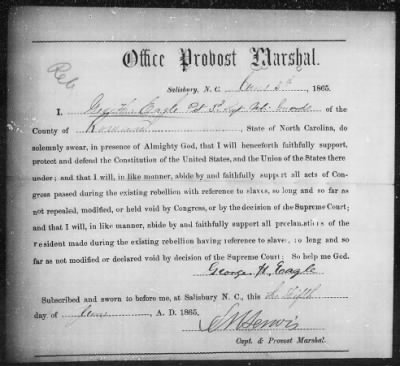 Reb
Office Provost Marshal.
Salisbury, N. C. June 5th 1865.
I, Geo H. Eagle of the
County of Rowan, State of North Carolina, do
solemnly swear, in presence of Almighty God, that I will henceforth faithfully support,
protect and defend the Constitution of the United States, and the Union of the States there
under; and that I will, in like manner, abide by and faithfully support all acts of Con-
gress passed during the existing rebellion with reference to slaves, so long and so far as
not repealed, modified, or held void by Congress, or by the decision of the Supreme Court;
and that I will, in like manner, abide by and faithfully support all proclamations of the
President made during the existing rebellion having reference to slaves, so long and so
far as not modified or declared void by decision of the Supreme Court: So help me God.
George H. Eagle
Subscribed and sworn to before me, at Salisbury N. C., this the Fifth
day of June, A. D. 1865.
Capt. & Provost Marshal.